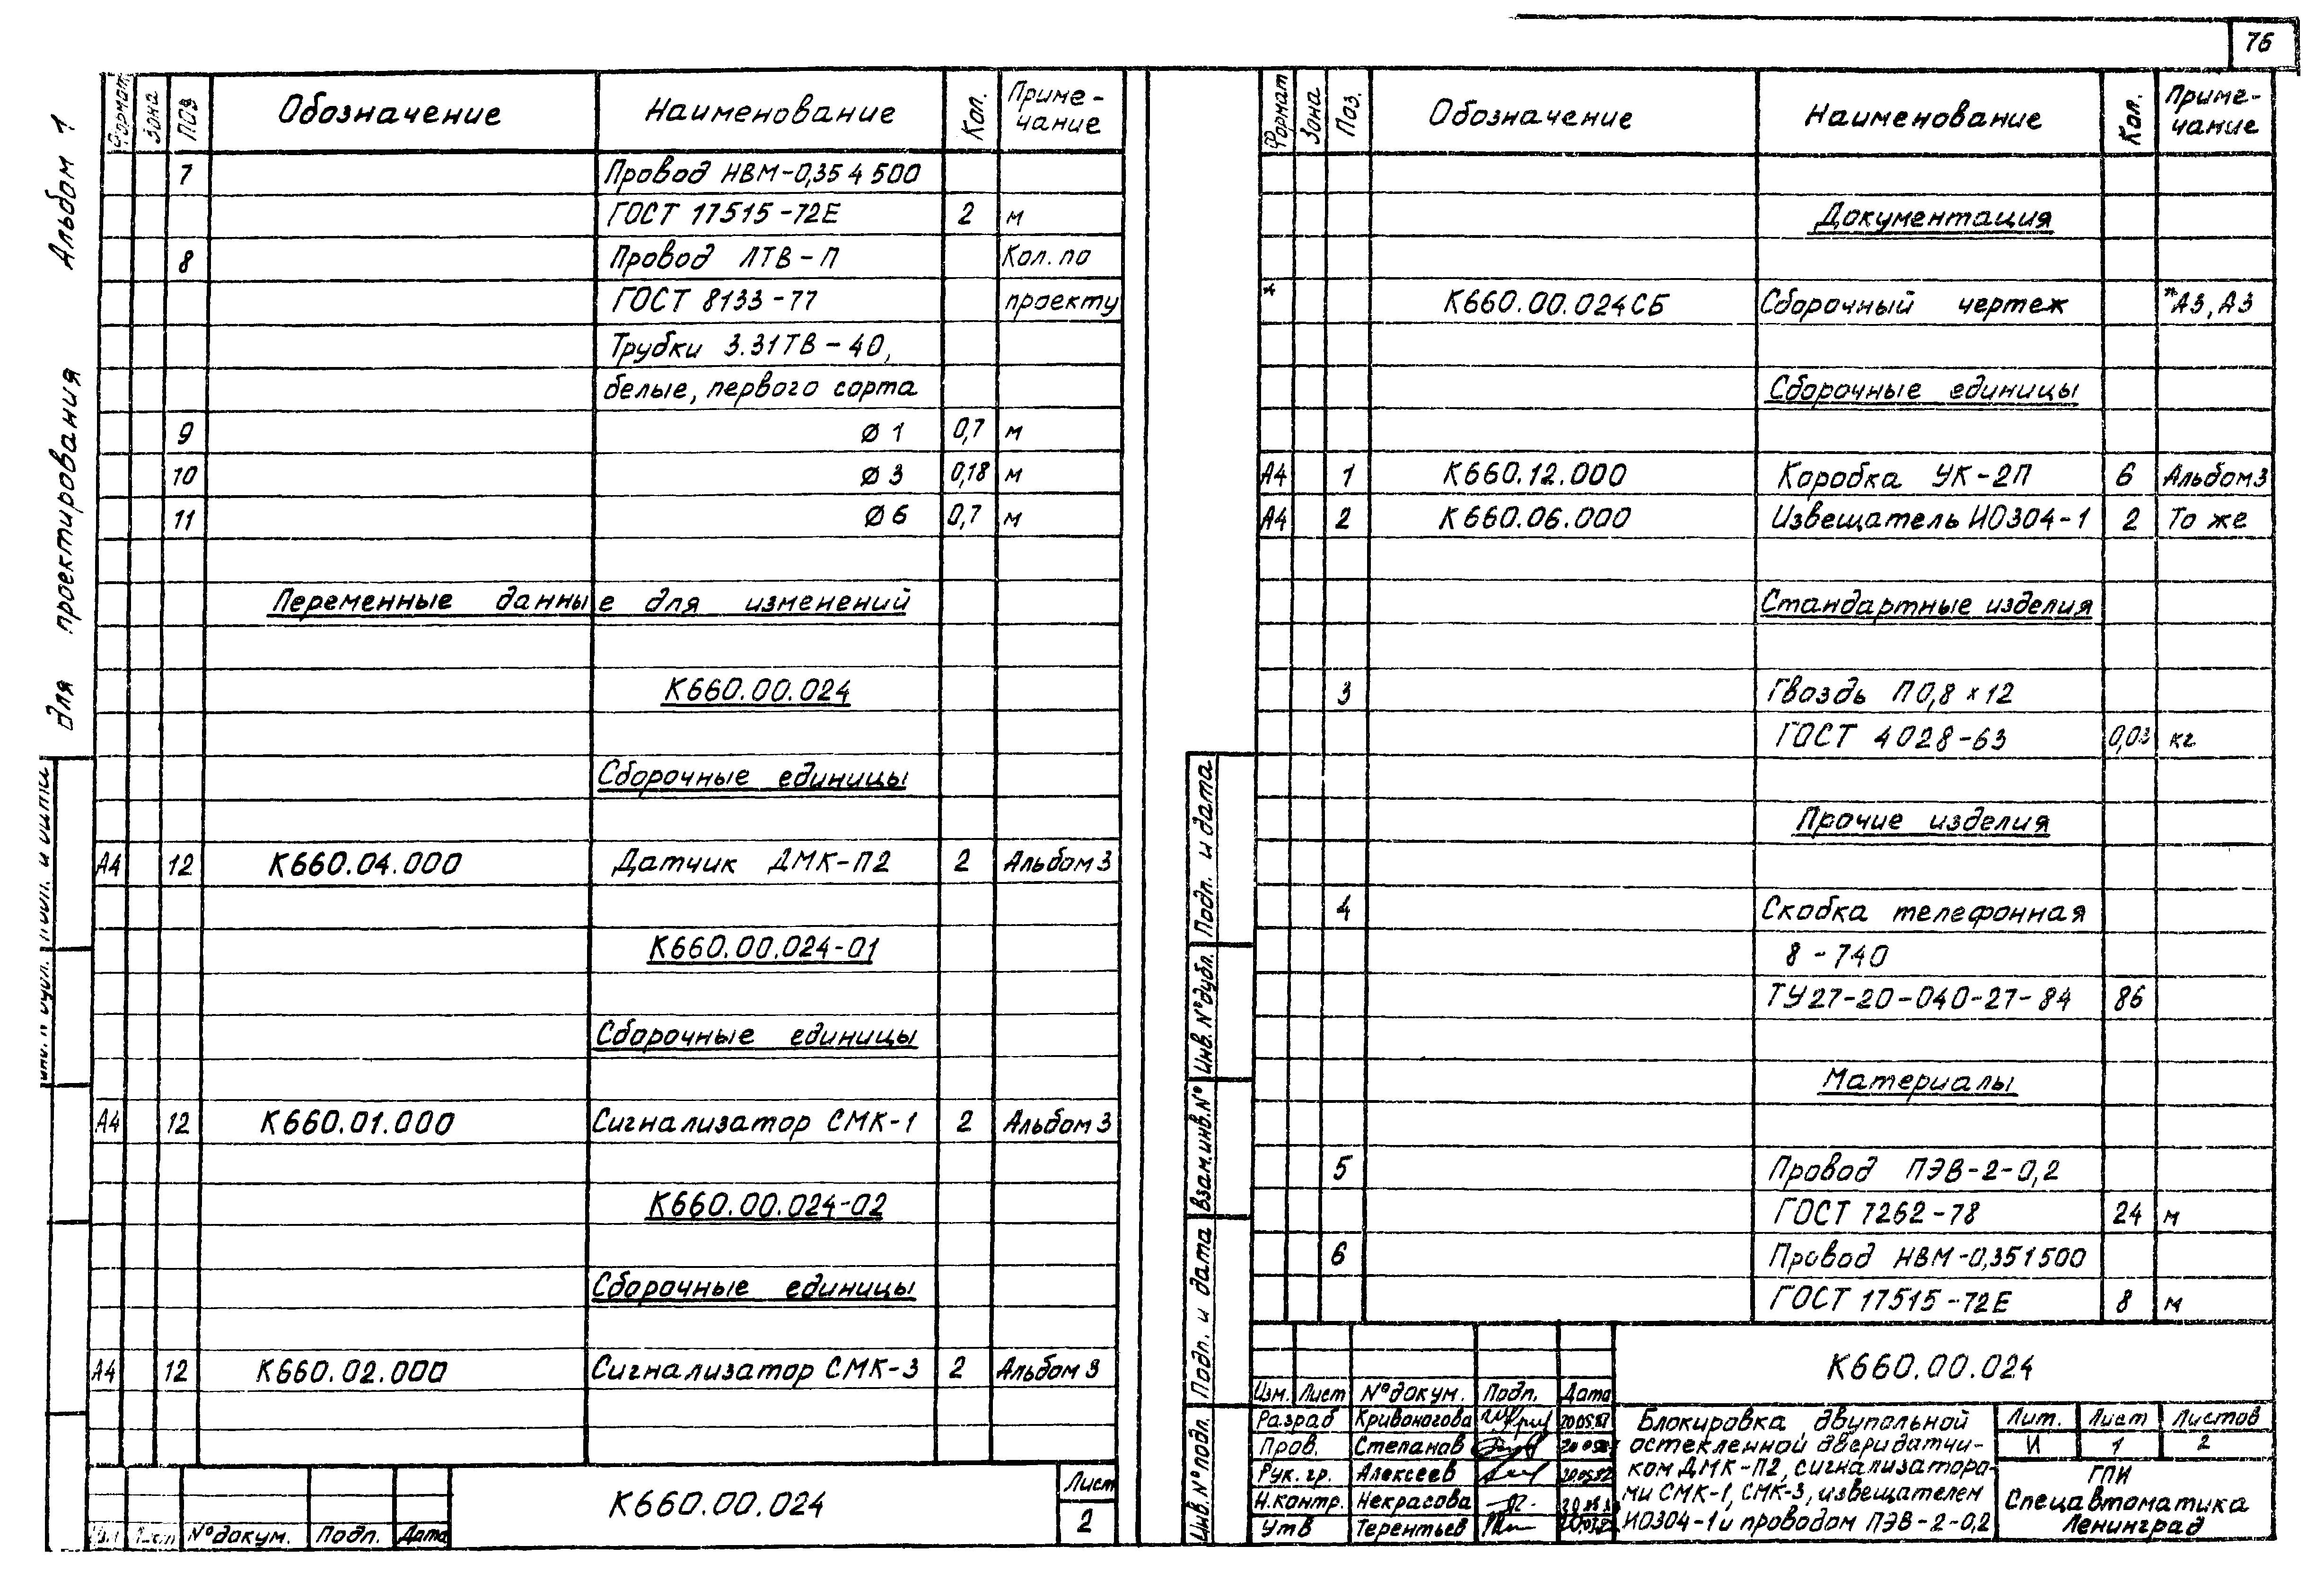 76
Альбом 1
для проектирования
Формат Зона Поз Обозначение Наименование Кол. Приме-
чание
7 Провод НВМ-0,35 4 500
ГОСТ 17515-72Е 2 м
8 Провод ЛТВ-П Кол. по
ГОСТ 8133-77 проекту
Трубки 3.31ТВ-40,
белые, первого сорта
9 Ø 1 0,7 м
10 Ø 3 0,18 м
11 Ø 6 0,7 м
Переменные данные для изменений
К660.00.024
Сборочные единицы
А4 12 К660.04.000 Датчик ДМК-П2 2 Альбом 3
К660.00.024-01
Сборочные единицы
А4 12 К660.01.000 Сигнализатор СМК-1 2 Альбом 3
К660.00.024-02
Сборочные единицы
А4 12 К660.02.000 Сигнализатор СМК-3 2 Альбом 3
К660.00.024
Лист
2
Лист № докум. Подп. Дата
Формат Зона Поз. Обозначение Наименование Кол. Приме-
чание
Документация
* К660.00.024СБ Сборочный чертеж *А3, А3
Сборочные единицы
А4 1 К660.12.000 Коробка УК-2П 6 Альбом 3
А4 2 К660.06.000 Извещатель ИО304-1 2 То же
Стандартные изделия
3 Гвоздь П 0,8 х 12
ГОСТ 4028-63 0,03 кг
Прочие изделия
4 Скобка телефонная
8-740
ТУ27-20-040-27-84 86
Материалы
5 Провод ПЭВ-2-0,2
ГОСТ 7262-78 24 м
6 Провод НВМ-0,35 1 500
ГОСТ 17515-72Е 8 м
Подп. и дата
Инв. № дубл.
Взам. инв. №
Подп. и дата
Инв. № подл.
К660.00.024
Изм. Лист № докум. Подп. Дата
Разраб Кривоногова 20.05.87
Пров. Степанов
Рук. гр. Алексеев
Н.контр. Некрасова
Утв Терентьев
Блокировка двупольной
остекленной двери датчи-
ком ДМК-П2, сигнализатора-
ми СМК-1, СМК-3, извещателем
ИО304-1 и проводом ПЭВ-2-0,2
Лит. Лист Листов
И 1 2
ГПИ
Спецавтоматика
Ленинград